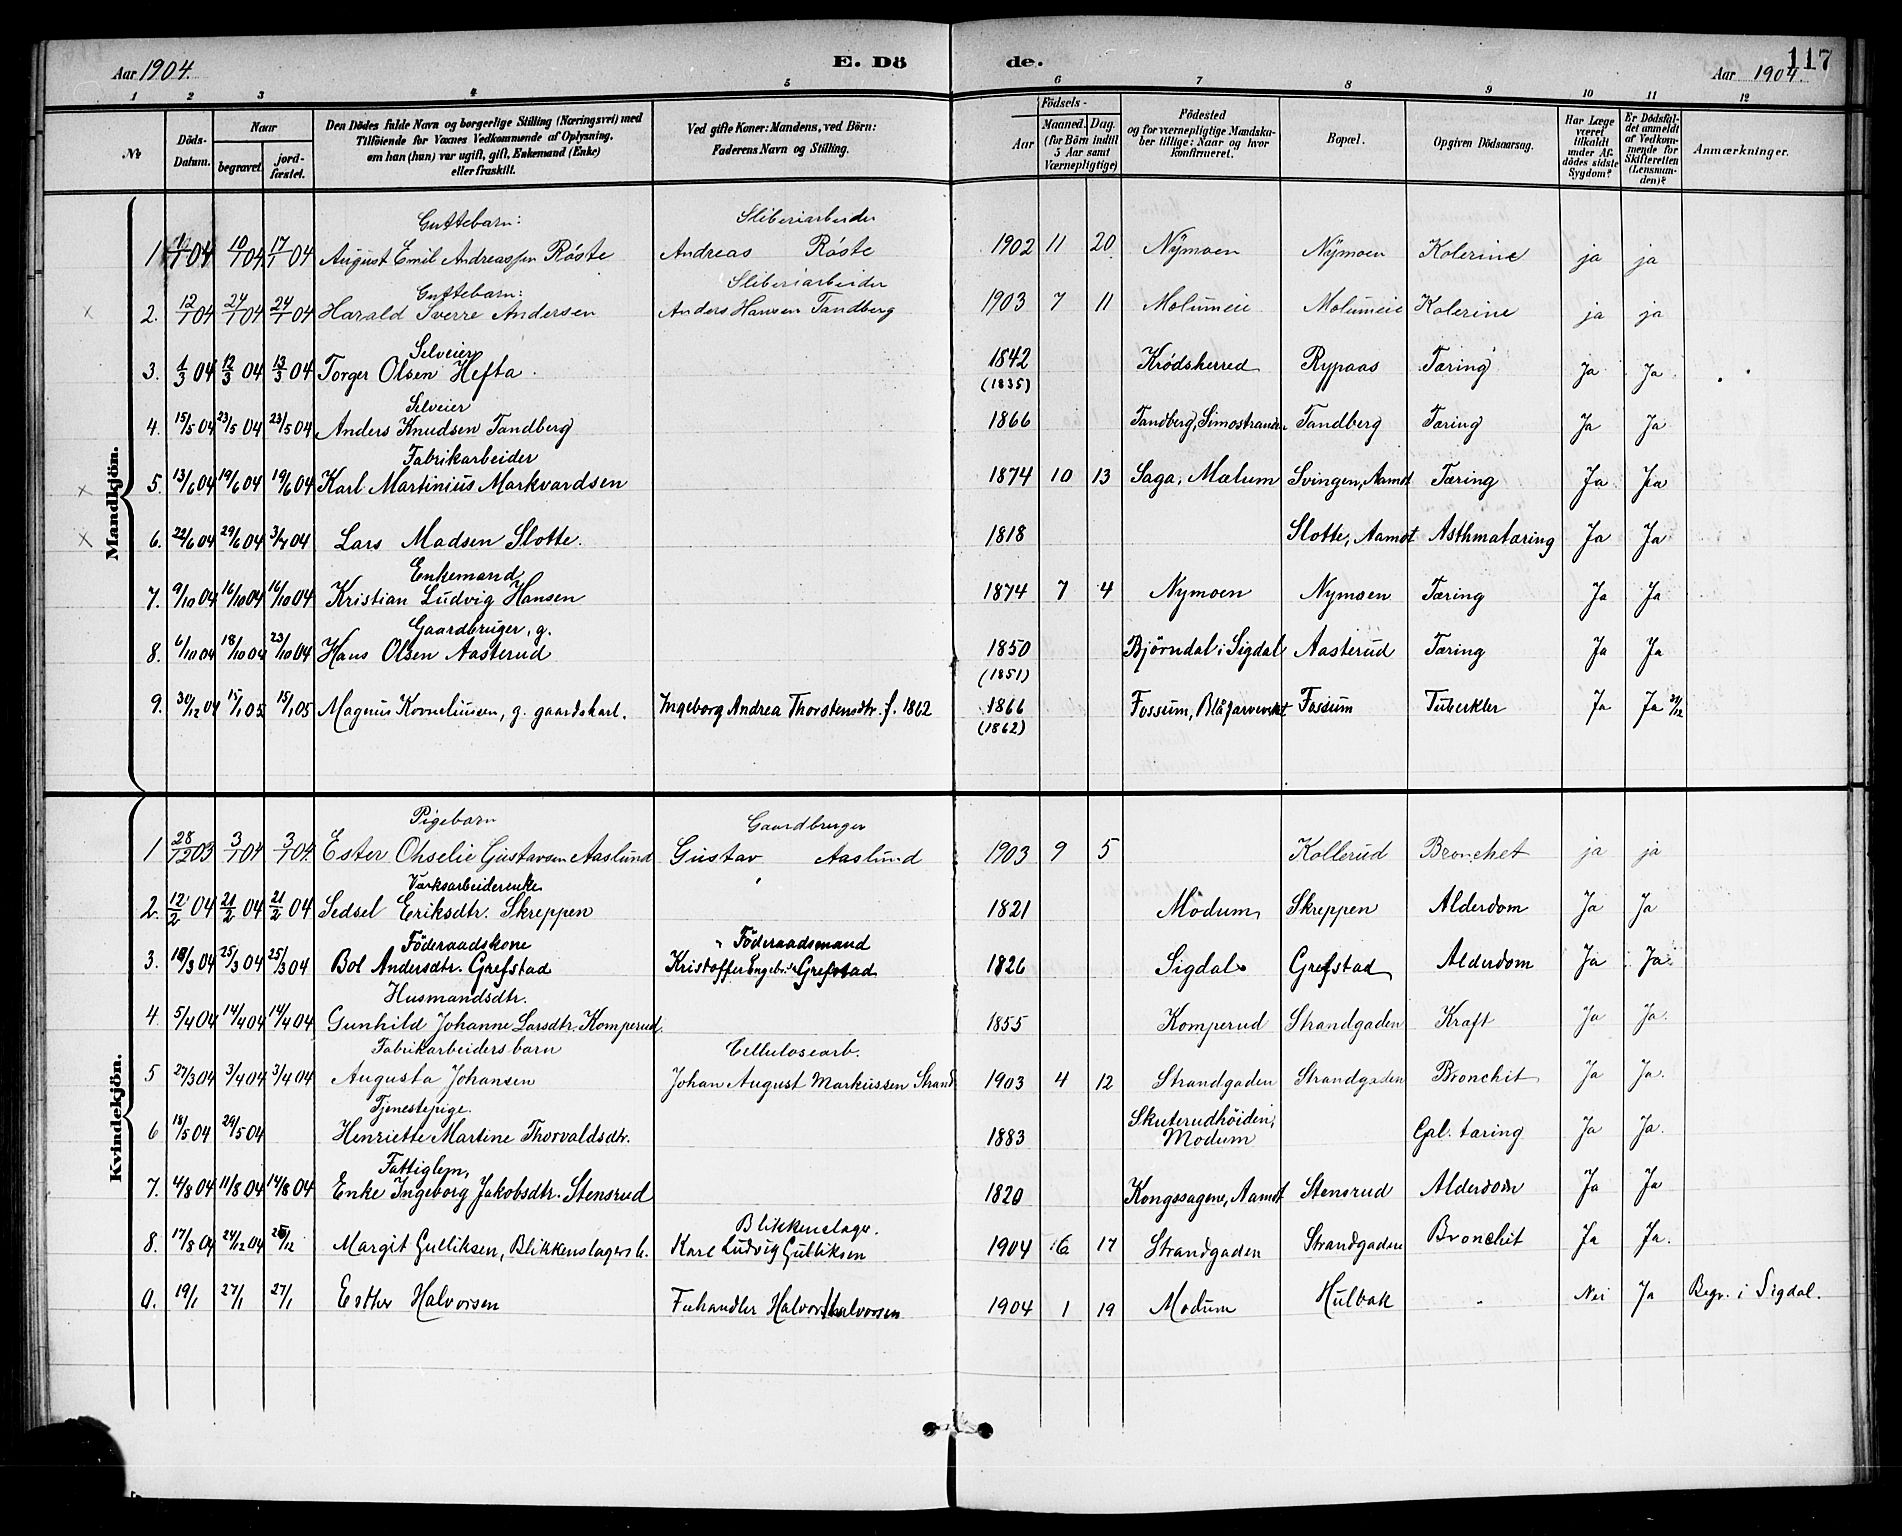 Aar 1904.
E. Dö
de.
117
Aar 1904.
1 2 3 4 5 6 7 8 9 10 11 12
№
Döds-Datum.
Naar
begravet.
jord-fæstet.
Den Dödes fulde Navn og borgerlige Stilling (Næringsvei) med
Tilföiende for Voxnes Vedkommende af Oplysning,
om han (hun) var ugift, gift, Enkemand (Enke)
eller fraskilt.
Ved gifte Koner: Mandens, ved Börn:
Faderens Navn og Stilling.
Födsels-
Aar
Maaned. Dag.
(for Börn indtil
5 Aar samt
Værnepligtige)
Födested
og for værnepligtige Mandska-
ber tillige: Naar og hvor
konfirmeret.
Bopæl.
Opgiven Dödsaarsag.
Har Læge
været
tilkaldt
under Af-
dödes sidste
Sygdom?
Er Dödsfal-
det anmeldt
af Vedkom-
mende for
Skifteretten
(Lensman-
den)?
Anmærkninger.
Mandkjön.
Guttebarn: Sliberiarbeider
1 1/1 04 10/1 04 17/1 04 August Emil Andreassen Röste Andreas Röste 1902 11 20 Nÿmoen Nÿmoen Kolerine ja ja
Guttebarn: Sliberiarbeider
2. 12/1 04 24/1 04 24/1 04 Harald Sverre Andersen Anders Hansen Tandberg 1903 7 11 Molumeie Molumeie Kolerine ja ja
Selveier
3. 1/3 04 12/3 04 13/3 04 Torger Olsen Hefta. 1842 (1835) Krødsherred Rypaas Tæring Ja Ja
Selveier
4. 15/5 04 23/5 04 23/5 04 Anders Knudsen Tandberg 1866 Tandberg, Simostranden Tandberg Tæring Ja Ja
Fabrikarbeider
5. 13/6 04 19/6 04 19/6 04 Karl Martinius Markvardsen 1874 10 13 Saga, Mælum Svingen, Aamot Tæring Ja Ja
6. 22/6 04 29/6 04 3/7 04 Lars Madsen Slotte. 1818 Slotte, Aamot Asthmatæring Ja Ja
Enkemand
7. 9/10 04 16/10 04 16/10 04 Kristian Ludvig Hansen 1874 7 4 Nymoen Nymoen Tæring Ja Ja
Gaardbruger, g.
8. 6/10 04 18/10 04 23/10 04 Hans Olsen Aasterud 1850 (1851) Bjørndal i Sigdal Aasterud Tæring Ja Ja
9. 30/12 04 15/1 05 15/1 05 Magnus Korneliussen, g. gaardskarl. Ingeborg Andrea Thorstensdtr. f. 1862 1866 (1862) Fossum, Blåfarveværket Fossum Tuberkler Ja Ja 31/12
Kvindekjön.
Pigebarn Gaardbruger
1 28/12 03 3/1 04 3/1 04. Ester Ohselie Gustavsen Aaslund Gustav Aaslund 1903 9 5 Kollerud Bronchet ja ja
Værksarbeiderenke
2. 12/2 04 21/2 04 21/2 04 Sedsel Eriksdtr. Skreppen 1821 Modum, Skreppen Alderdom Ja Ja
Föderaadskone Föderaadsmand
3. 18/3 04 25/3 04 25/3 04 Bol Andersdtr. Grefstad Kristoffer Grefstad 1826 Sigdal Grefstad Alderdom Ja Ja
Husmandsdtr.
4. 5/4 04 14/4 04 14/4 04 Gunhild Johanne Larsdtr. Komperud 1855 Komperud Strandgaden Kræft Ja Ja.
Fabrikarbeiders barn Cellulosearb.
5 27/3 04 3/4 04 3/4 04 Augusta Johansen Johan August Markussen Strand 1903 4 12 Strandgaden Strandgaden Bronchit Ja Ja.
Tjenestepige.
6 18/5 04 29/5 04 Henriette Martine Thorvaldsdtr. 1883 Skuterudhöiden, Modum Gal. tæring Ja Ja.
Fattiglem,
7. 4/8 04 11/8 04 14/8 04 Enke Ingeborg Jakobsdtr. Stensrud 1820 Kongssagene, Aamot Stensrud Alderdom Ja Ja
Blikkenslager.
8. 17/8 04 24/12 04 Margit Gulliksen, Blikkenslagers b. Karl Ludvig Gulliksen 1904 6 17 Strandgaden Strandgaden Bronchit Ja Ja.
9. 19/1 27/1 27/1 Esther Halvorsen Fehandler Halvor Halvorsen 1904 1 19 Modum Hulbak Nei Ja Begr. i Sigdal.